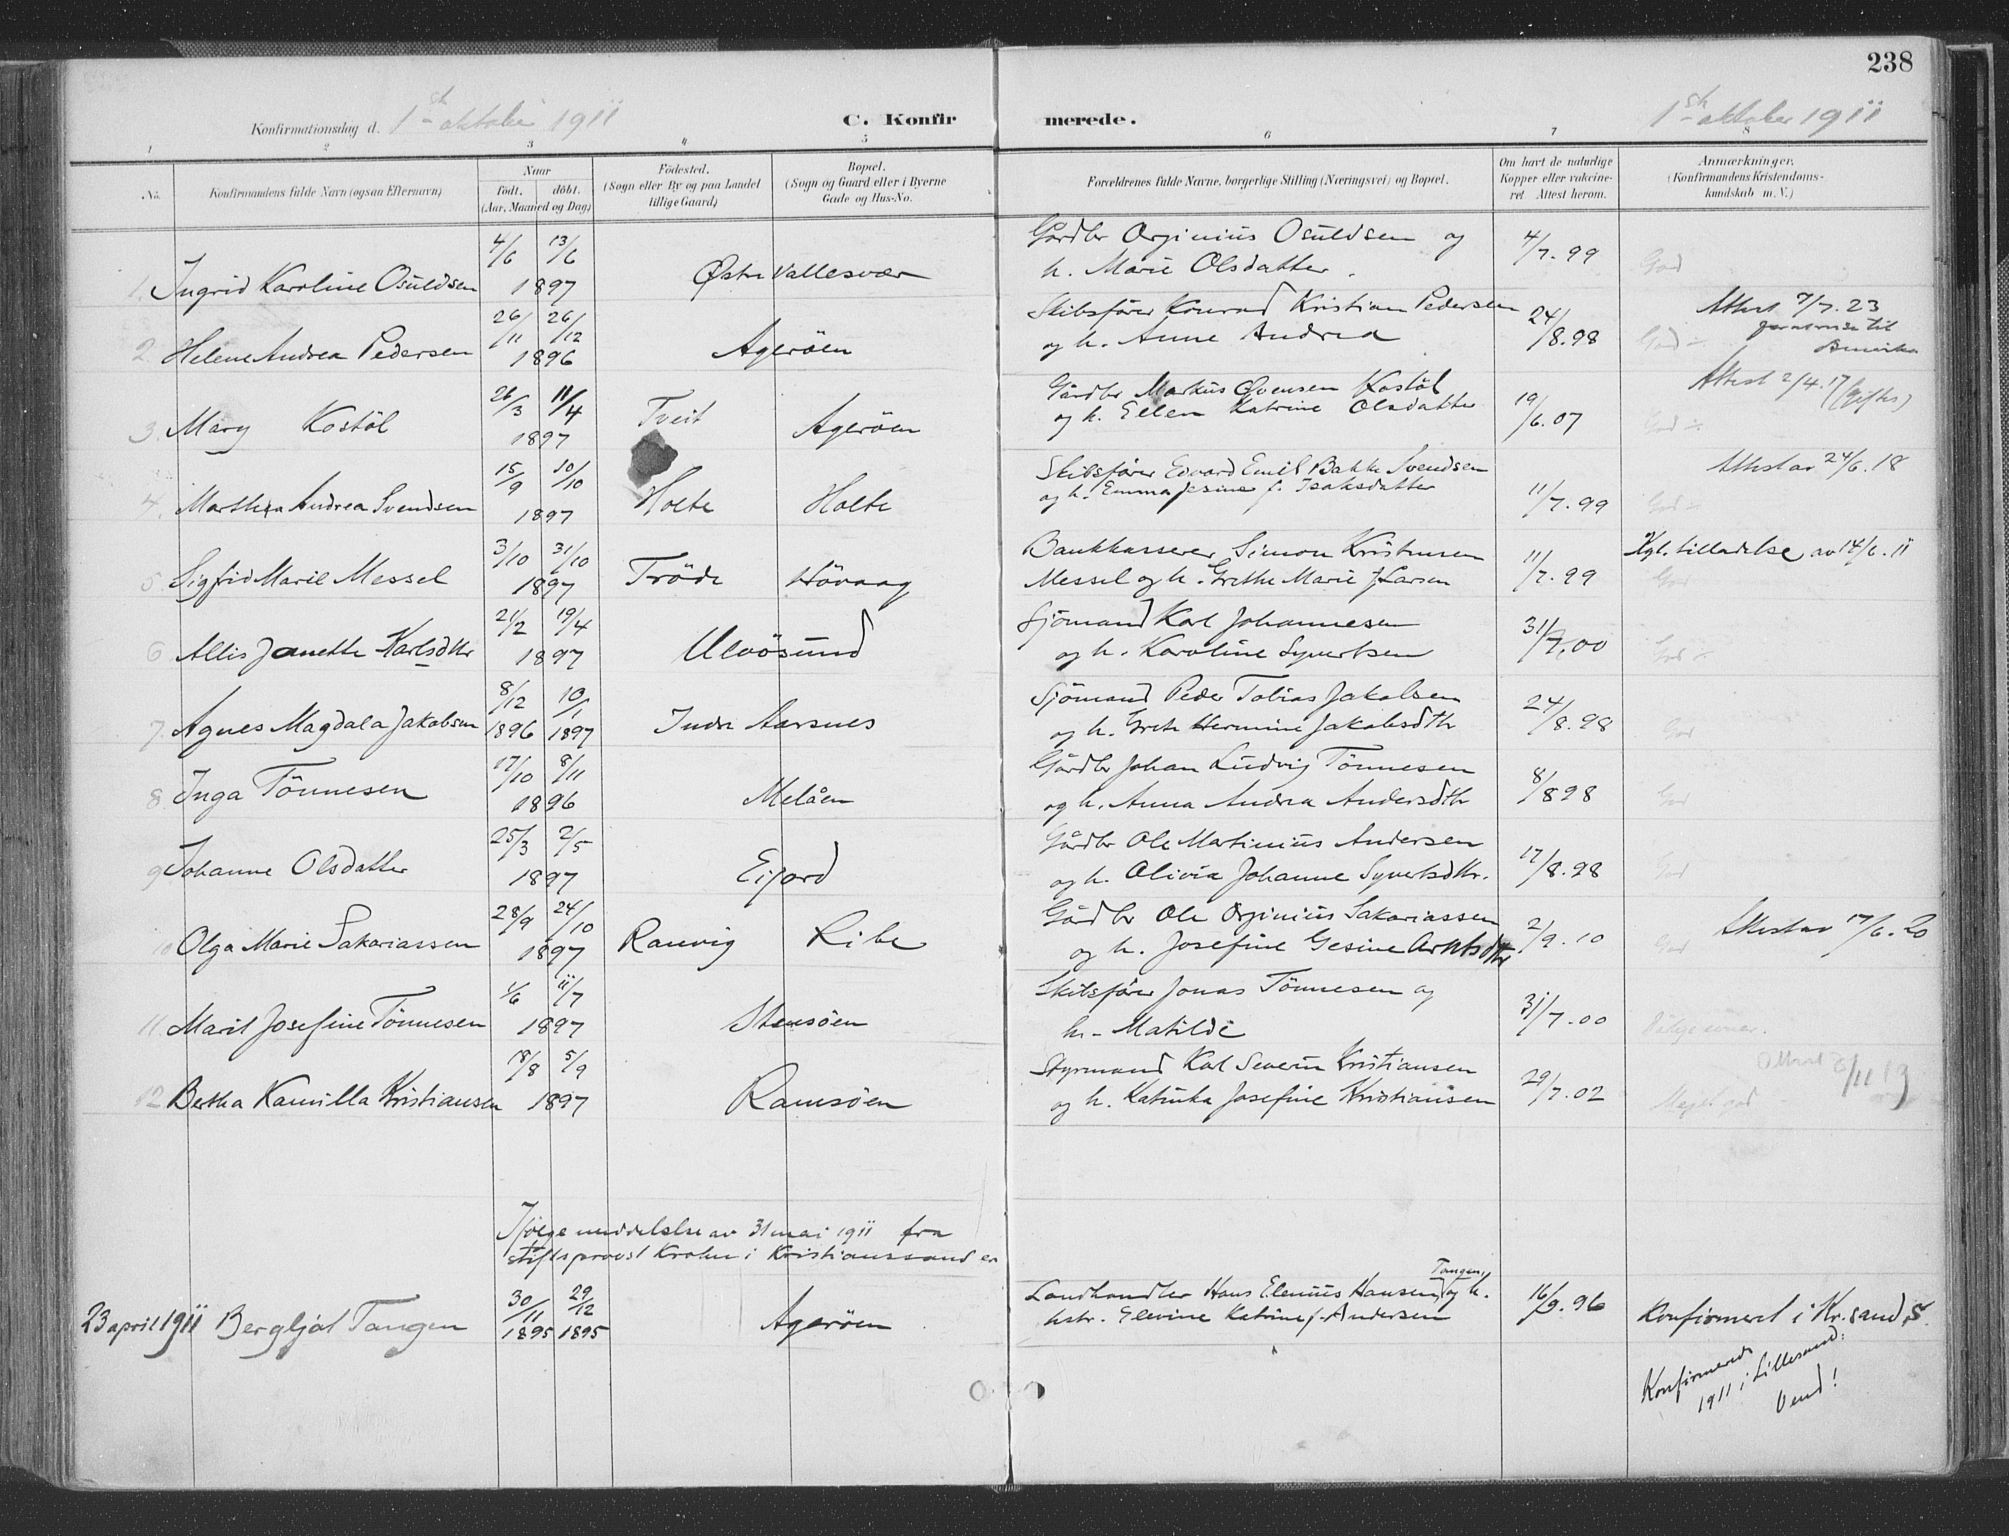 238
Konfirmationsdag d. 1ste oktober 1911 C. Konfirmerede. 1ste oktober 1911
1 2 3 4 5 6 7 8
No. Konfirmandens fulde Navn (ogsaa Efternavn) Naar født. døbt. (Aar, Maaned og Dag) Fødested. (Sogn eller By og paa Landet tillige Gaard) Bopæl. (Sogn og Gaard eller i Byerne Gade og Hus-No. Forældrenes fulde Navne, borgerlige Stilling (Næringsvei) og Bopæl. Om havt de naturlige Kopper eller vakcineret Attest herom. Anmærkninger. (Konfirmandens Kristendomskundskab m. V.)
4/6 13/6 Gårdbr Orginius Osuldsen og 4/7.99
1. Ingrid Karoline Osuldsen 1897 Østre Vallesvær h. Marie Olsdatter. God
26/11 26/12 Skibsfører Konrad Kristian Pedersen 24/8.98 Attest 7/7.23
2. Helene Andrea Pedersen 1896 Agerøen og h. Anne Andrea God
26/3 11/4 Gårdbr Markus Øvensen Kostøl 19/6.07 Attest 2/4.17 (giftes)
3. Mary Kostøl 1897 Tveit Agerøen og h. Ellen Katrine Olsdatter God
15/9 10/10 Skibsfører Edvard Emil Bakke Svendsen 11/7.99 Attest av 24/6.18
4. Marthea Andrea Svendsen 1897 Holte Holte og h. Emma Jesine f. Isaksdatter God
3/10 31/10 Bankkasserer Simon Kristensen 11/7.99 Kgl. tilladelse av 14/6.11
5. Sigfrid Marie Messel 1897 Trøde Høvaag Messel og h. Grethe Marie f. Larsen God
21/2 19/4 Sjømand Karl Johannesen 31/7.00
6 Allis Janette Karlsdtr 1897 Ulvøsund og h. Karoline Syvertsen God
8/12 10/1 Sjømand Peder Tobias Jakobsen 24/8.98
7. Agnes Magdala Jakobsen 1896 1897 Indre Aarsnes og h. Grete Hermine Jakobsdtr God
17/10 8/11 Gårdbr Johan Ludvig Tønnesen 8/8 98
8. Inga Tønnesen 1896 Melåen og h. Anna Andrea Andersdtr God
25/3 2/5 Gårdbr Ole Martinius Andersen 17/8.98
9 Johanne Olsdatter 1897 Eifjord og h. Olivia Johanne Syvertsdtr. God
28/9 24/10 Gårdbr Ole Orginius Sakariassen 2/9.10 Attest av 17/6.20
10 Olga Marie Sakariassen 1897 Ranvig Ribe og h. Josefine Gesine Arntsdtr God
4/6 11/7 Skibsfører Jonas Tønnesen og 31/7.00
11. Marit Josefine Tønnesen 1897 Stensøen h. Matilde
18/8 5/9 Styrmand Karl Severin Kristiansen 29/7.02
12 Betha Kamilla Kristiansen 1897 Ramsøen og h. Katinka Josefine Kristiansen Meget god
Ifølge meddelelse av 31 mai 1911 fra
stiftsprovst Krohn i Kristianssand er
30/11 29/12 Landhandler Hans Elenius Hansen Tangen, og h. 16/9.96
23 april 1911 Bergljot Tangen 1895 1895 Agerøen hstr. Elevine Katrine f. Andersen Konfirmeret i Kr.sand S.
Konfirmerede
1911 i Lillesand:
Vend!